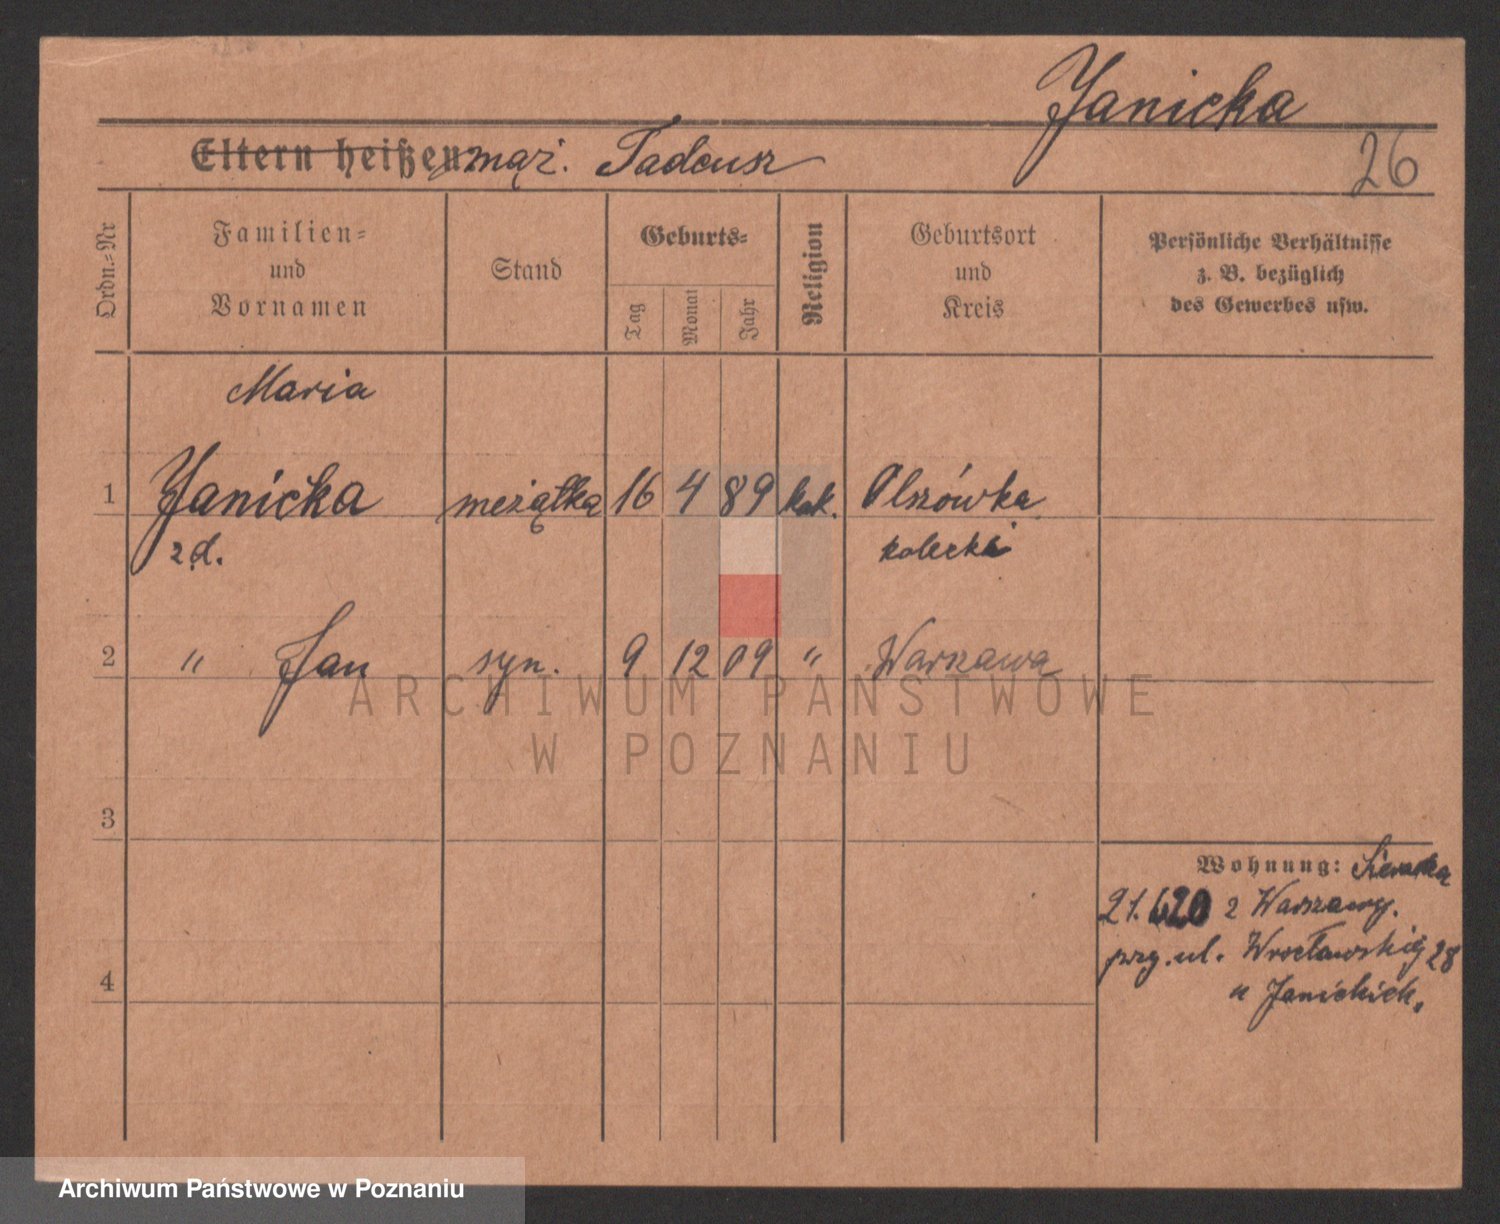 Janicka
26
Eltern heißen mąż. Tadeusz
Ordn.-Nr
Familien-
und
Vornamen
Stand
Geburts-
Tag
Monat
Jahr
Religion
Geburtsort
und
Kreis
Persönliche Verhältnisse
z. B. bezüglich
des Gewerbes usw.
Maria
1 Janicka mężatka 16 4 89 kat. Olszówka
z d. kolecki
2 " Jan syn. 9 12 09 " Warszawa
3
4
Wohnung:
21. 620 z Warszawy.
prz. ul. Wrocławskiej 28
u Janickich.
ARCHIWUM PAŃSTWOWE
W POZNANIU
Archiwum Państwowe w Poznaniu